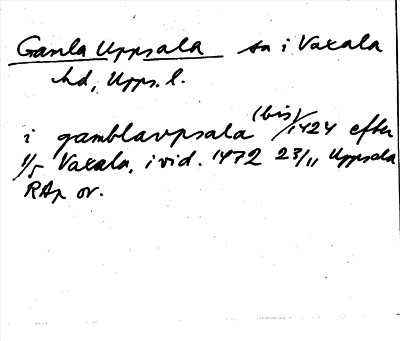 Gamla Uppsala sn i Vaxala
hd, Upps. l.
i gamblavpsala (bis) 1424 efter
1/5 Vaxala, i vid. 1472 23/11 Uppsala
RAp or.